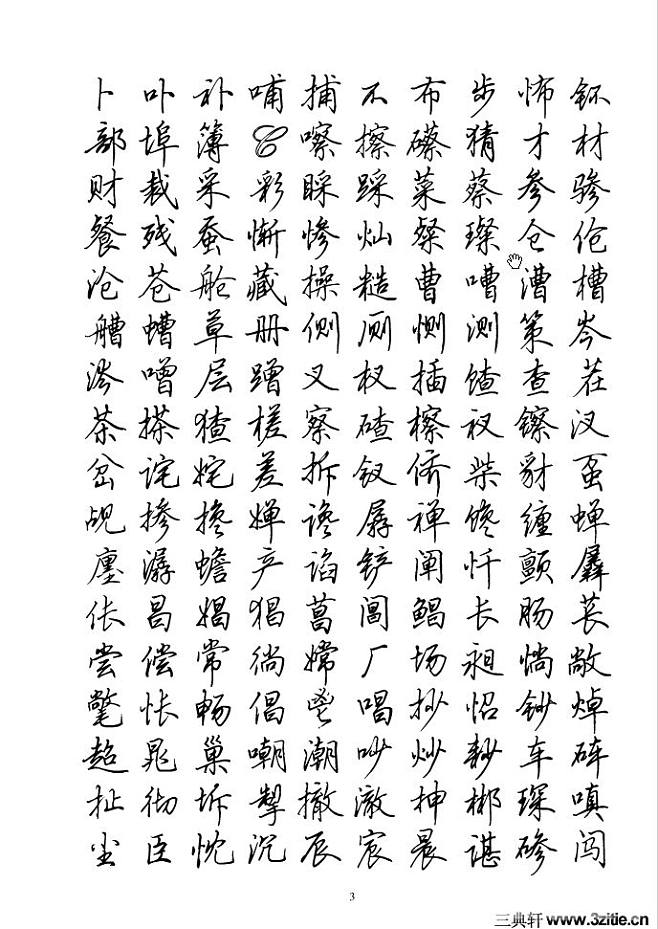 卜卟补哺捕不布步怖钚
部埠簿C嚓擦礤猜才材
财裁采彩睬踩菜蔡参骖
餐残蚕惭惨灿粲璨仓伧
沧苍舱藏操糙曹嘈漕槽
艚螬草册侧厕恻测策岑
涔噌层蹭叉杈插馇查茬
茶搽猹槎察碴檫衩镲汊
岔诧姹差拆钗侪柴豺虿
觇掺搀婵谗孱禅馋缠蝉
廛潺蟾产谄铲阐忏颤羼
伥昌娼猖菖阊鲳长肠苌
尝偿常徜嫦厂场昶惝敞
氅怅畅倡鬯唱抄怊钞焯
超晁巢嘲潮吵炒耖车砗
扯彻坼掣撤澈抻郴琛嗔
尘臣忱沉辰宸晨谌碜闯
3
三典轩 www.3zitie.cn